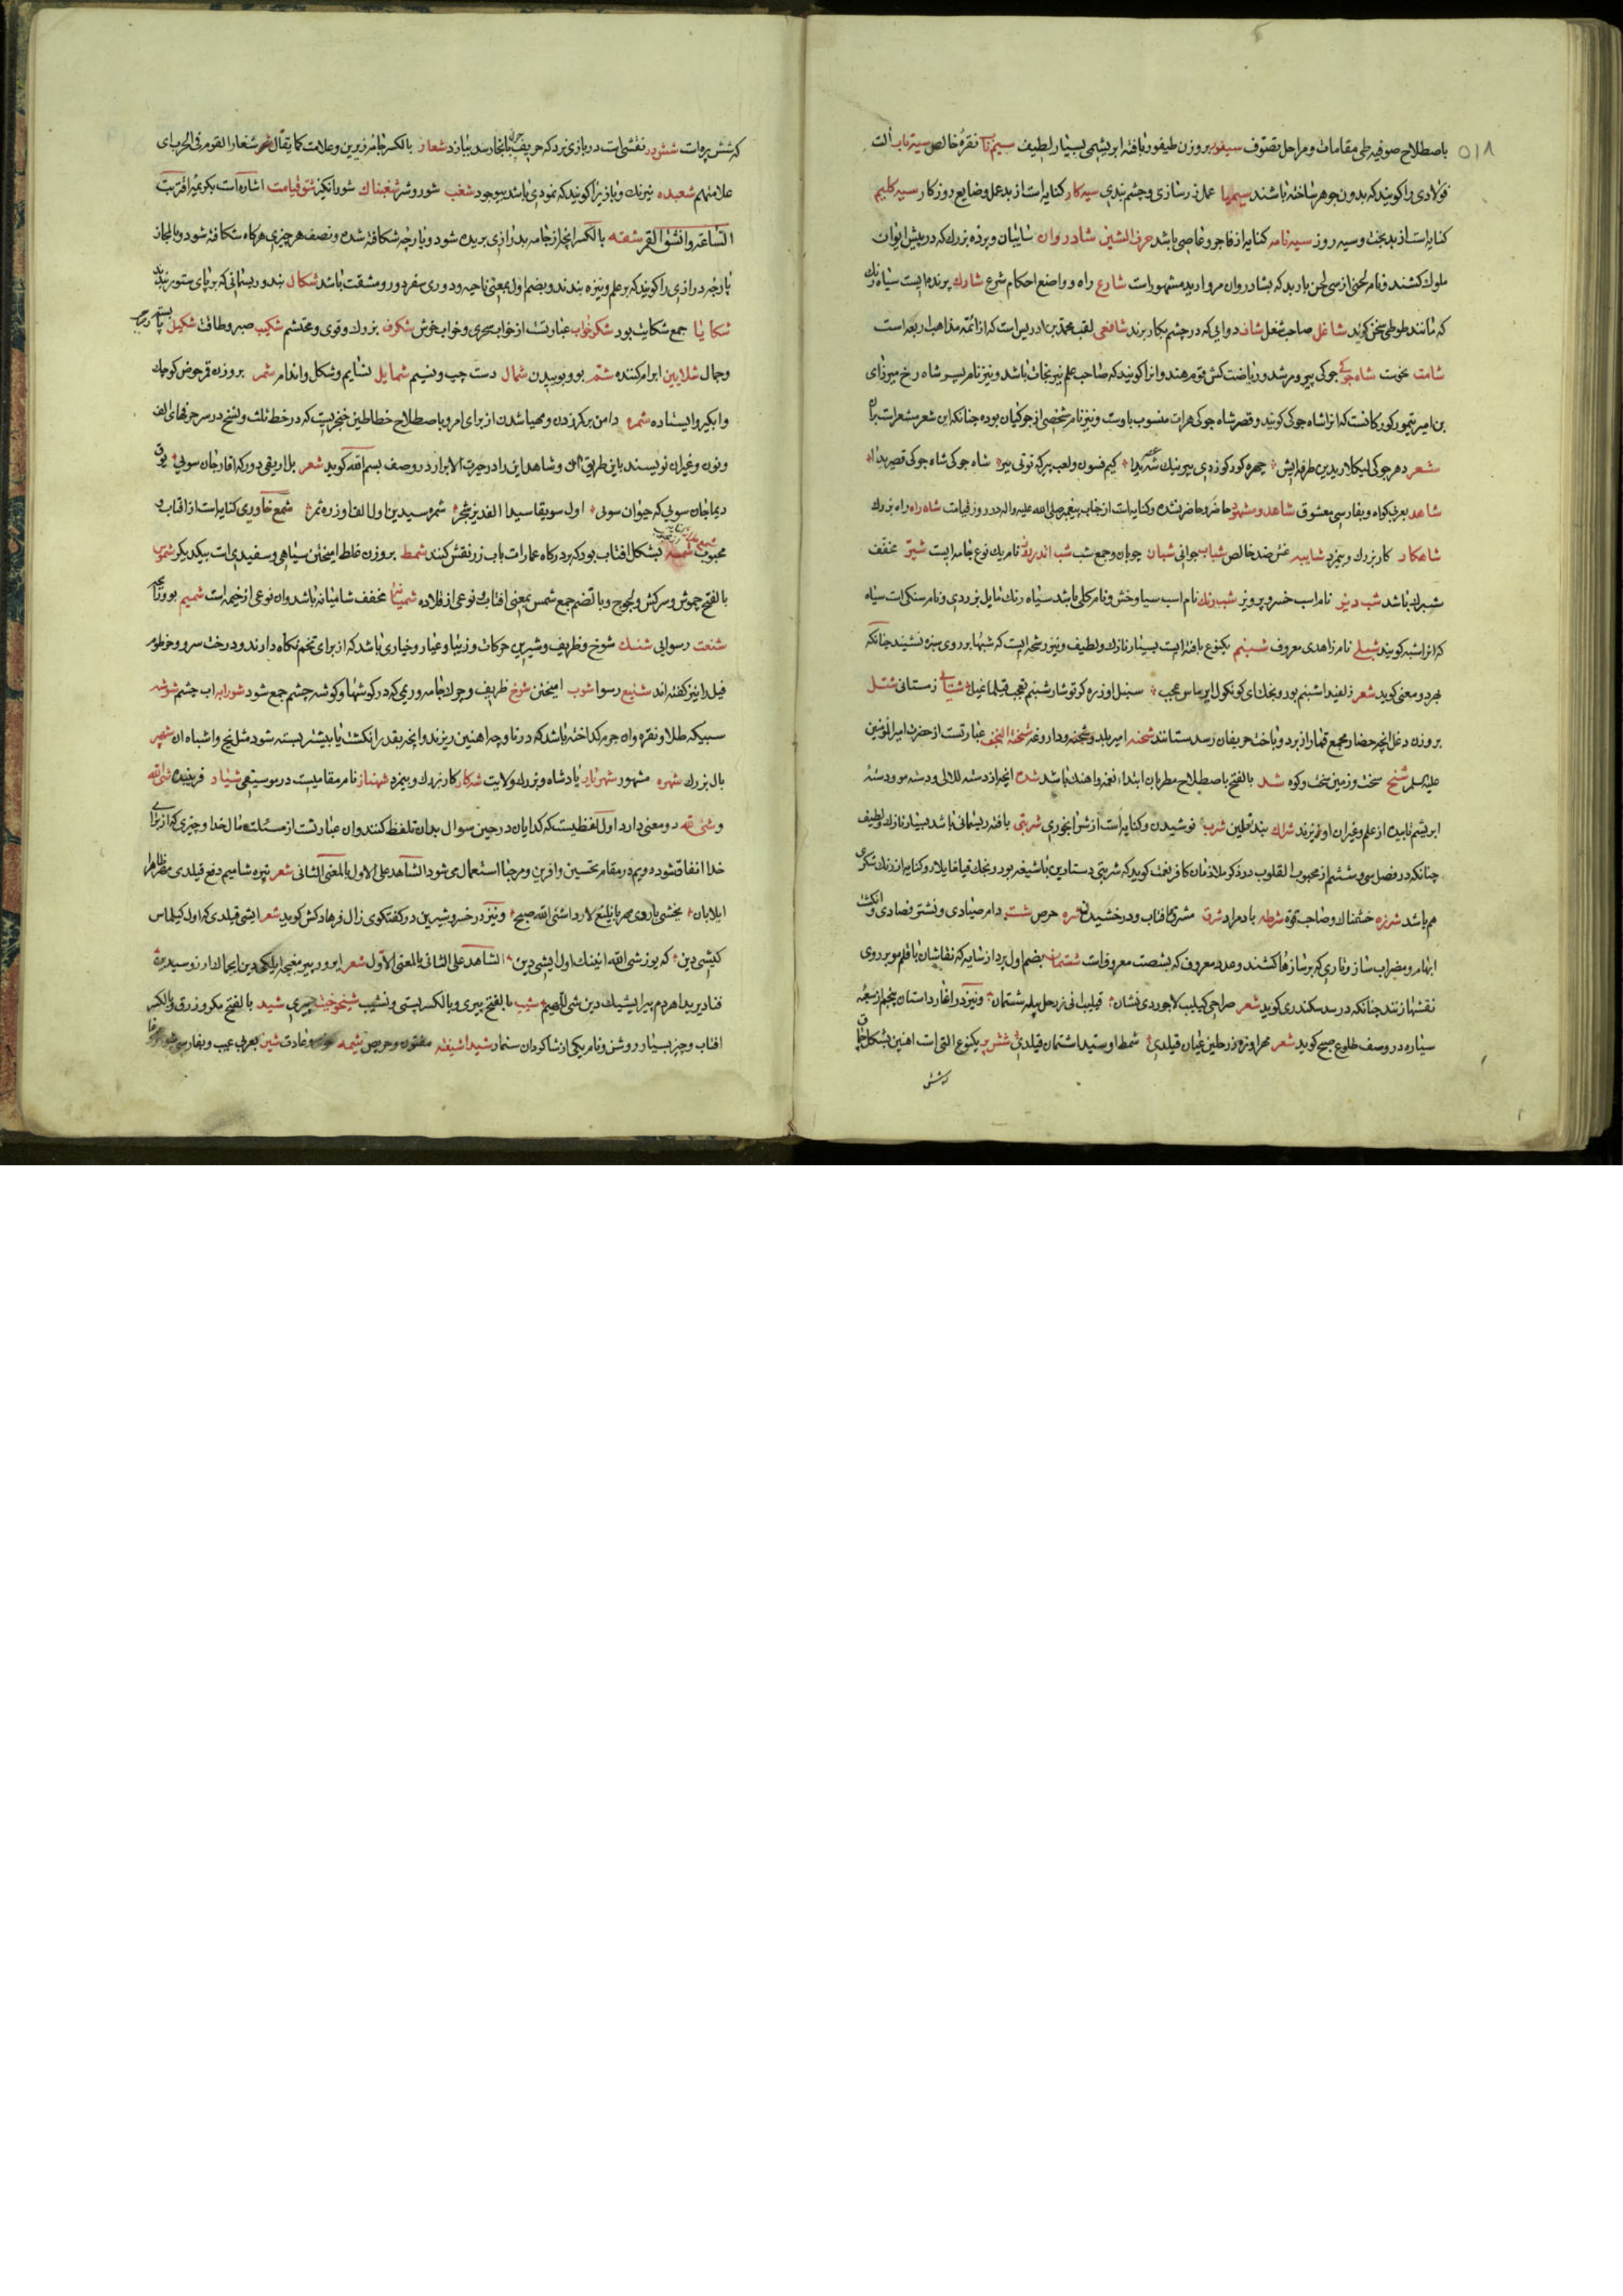 ۵۱۸
باصطلاح صوفیه طی مقامات و مراحل تصوف سیفور بروزن طیفور بافته ابریشمی بسیار لطیف سیم ناب نقرهٔ خالص سیه تاب آلت
فولادی را کویند که بدون جوهر ساخته باشند سیمیا عمل زرسازی و چشم بندی سیه کار کنایه است از بدعمل و ضایع روزکار سیه کلیم
کنایه است از بدبخت و سیه روز سیه نامه کنایه از فاجر و عاصی باشد حرف الشین شادروان سایبان و پرده بزرک که در پیش ایوان
ملوک کشند و نام لحنی از سی لحن باربد که بشادروان مروارید مشهور است شارع راه و واضع احکام شرع شارک پرنده ایست سیاه رنک
که مانند طوطی سخن کوید شاغل صاحب شغل شاف دوایی که در چشم بکار برند شافعی لقب محمد بن ادریس است که از ائمه مذاهب اربعه است
شامت نحوست شاه جوکی جوکی پیر و مرشد و ریاضت کش قوم هند و انرا کویند که صاحب علم نیرنجات باشد و نیز نام پسر شاه رخ میرزای
بن امیر تیمور کورکانست که انرا شاه جوکی کویند و قصر شاه جوکی هرات منسوب باوست و نیز نام شخصی از جوکیان بوده چنانکه این شعر مشعر است بران
شعر دهر جوکی لیکلا ریدین طرفه ایش چهره کورکوزدی پیر ونیک شه یدا کیم فسون ولعب بیرکه توتی بیر شاه جوکی شاه جوکی قصریدا
شاهد بعربی کواه و بفارسی معشوق شاهد و مشهود حاضر و حاضر شده و کنایه است از جناب پیغمبر صلی الله علیه واله در روز قیامت شاه راه راه بزرک
شاهکار کار بزرک و بیمزد شایبه غش ضد خالص شباب جوانی شبان چوپان و جمع شب شب اندر روز نام یک نوع جامه ایست شبر مخفف
شبرنک باشد شب دیز نام اسب خسرو پرویز شب رنک نام اسب سیاوخش و نام کلی باشد سیاه رنک مایل بزردی و نام سنکی است سیاه
که انرا شبه کویند شبلی نام زاهدی معروف شبنم یکنوع بافته ایست بسیار نازک و لطیف و نیز رشحه ایست که شبها بر روی سبزه نشیند چنانکه
بهر دو معنی کوید شعر زلفیدا شبنم بورونجک ای کونکول ایرماس عجب سنبل اوزره کرتوشار شبنم تعجب قیلماغیل شتایی زمستانی شتل
بروزن دغل انچه حضار مجمع قمار از برد و باخت حریفان رسد ستانند شحنه امیر بلد و شحنه و داروغه شحنة النجف عبارتست از حضرت امیرالمؤمنین
علیه السلم شخ سخت و زمین سخت و کوه شد بالفتح باصطلاح مطربان ابتداء نغمه و اهنک باشد شده انچه از دسته للالی و دسته مو و دسته
ابریشم تابیده از علم و غیران اویزند شراک بند نعلین شرب نوشیدن و کنایه است از شرابخوری شربتی بافته ریسمانی باشد بسیار نازک و لطیف
چنانکه در فصل سی و ششم از محبوب القلوب در ذکر ملازمان کافر نعمت کوید که شربتی دستارین باشیغه بورونجک قیلغایلار و کنایه از رنک شکری
هم باشد شرزه خشمناک و صاحب قوة شرطه باد مراد شرق مشرق و افتاب و درخشیدن شره حرص شست دام صیادی و نشتر فصادی و انکشت
ابهام و مضراب ساز و تاری که بر سازها کشند و عدد معروف که بشصت معروف است شستمان بضم اول پرداز سایه که نقاشان با قلم مو بر روی
نقشها زنند چنانکه در سد سکندری کوید شعر صراحی کیلیب لاجوردی نشان قیلیب انی زرحل بیله شستمان و نیز در اغاز داستان پنجم از سبعه
سیاره در وصف طلوع صبح کوید شعر مهر اوزه زرحلین عیان قیلدی شمط اوستیدا شستمان قیلدی شش پر یکنوع التی است اهنین بشکل چماق
که شش
که شش پره است شش در نقشی است در بازی نرد که حریف چون بانجا رسد ببازد شعار بالکسر جامه زیرین و علامت کما یقال شعار القوم فی الحرب ای
علامتهم شعبده نیرنک و بازی را کویند که نمودی باشد بیوجود شغب شور و شر شغبناک شورانکیز شق قیامت اشاره است بکریمه اقتربت
الساعة وانشق القمر شقه بالکسر انچه از جامه بدرازی بریده شود و پارچه شکافته شده و نصف هر چیزی هرکاه شکافته شود و بالمجاز
پارچه درازی را کویند که بر علم و نیزه بندند و بضم اول بمعنی ناحیه و دوری سفر دور و مشقت باشد شکال بند و ریسمانی که بر پای ستور بندند
شکایا جمع شکایت بود شکرخواب عبارتست از خواب سحری و خواب خوش شکرف بزرک و قوی و محتشم شکیب صبر و طاقت شکیل
و جمال شلایین ابرام کننده شم بو و بوییدن شمال دست چپ و نسیم شمایل شتایم و شکل و اندام شمر بروزن قمر حوض کوچک
و ابکیر و ایستاده شمره دامن بر کمر زدن و مهیا شدن از برای امر و باصطلاح خطاطین خنجریست که در خط ثلث و نسخ در سر حرفهای الف
و نون و غیران نویسند باین طریق و شاهد این را در حیرت الابرار در وصف بسم الله کوید شعر بلاریقی دورکه اقار جان سویی
دیما جان سویی که حیوان سویی اول سو یقاسیدا الفدیز شجر شمره سیدین اول الف اوزره ثمر شمع خاوری کنایه است از افتاب و
محبوب شمسه بشکل افتاب بود که بر درکاه عمارات باب زر نقش کنند شمط بروزن غلط امیختن سیاهی و سفیدی است بیکدیکر شموس
بالفتح چموش و سرکش و لجوج و با تضم جمع شمس بمعنی افتاب و نوعی از قلاده شمیانه مخفف شامیانه باشد و ان نوعی از خیمه است شمیم بو و
شنعت رسوایی شنک شوخ و ظریف و شیرین حرکات و زیبا و عیار و خیاری باشد که از برای تخم نکاه دارند و درخت سرو و خرطوم
فیل را نیز کفته اند شنیع رسوا شوب امیختن شوخ ظریف و چرک جامه و ریمی که در کوشها و کوشه چشم جمع شود شورابه اب چشم شوشه
سبیکه طلا و نقره و ان جرم کداخته باشد که در ناوچه اهنین ریزند و انچه بقدر انکشت یا بیشتر بسته شود مثل یخ و اشباه ان شهپر
بال بزرک شهره مشهور شهریار پادشاه و بزرک ولایت شهکار کار بزرک و بیمزد شهناز نام مقامیست در موسیقی شیاد فریبنده شی الله
و شی لله دو معنی دارد اول لفظیست که کدایان در حین سوال بدان تلفظ کنند و ان عبارتست از مسئلت مال خدا و چیزی که از برای
خدا انفاق شود دویم در مقام تحسین و افرین و مرحبا استعمال می شود الشاهد علی الاول بالمعنی الثانی شعر تیره شامیم دفع قیلدی
ایلابان یخشی یاروی مهر یانکلیغ لار داشی الله صبح و نیز در خسرو شیرین در کفتکوی زال فرهادکش کوید شعر ایشی قیلدی که اول کیلماس
کیشی دین که یوز شی الله انینک اول ایشی دین الشاهد علی الثانی بالمعنی الاول شعر ابرور پیر مغیچه
فنا دیریدا هر دم بیر ایشیک دین شی للهیم شیب بالفتح پیری و بالکسر پستی و نشیب شیخوخیت پیری شید بالفتح مکر و زرق و بالکسر
افتاب و چیز بسیار روشن و نام یکی از شاکردان سنمار شیدا شیفته مفتون و حریص شیمه خوی و عادت شین بعربی عیب و بفارسی